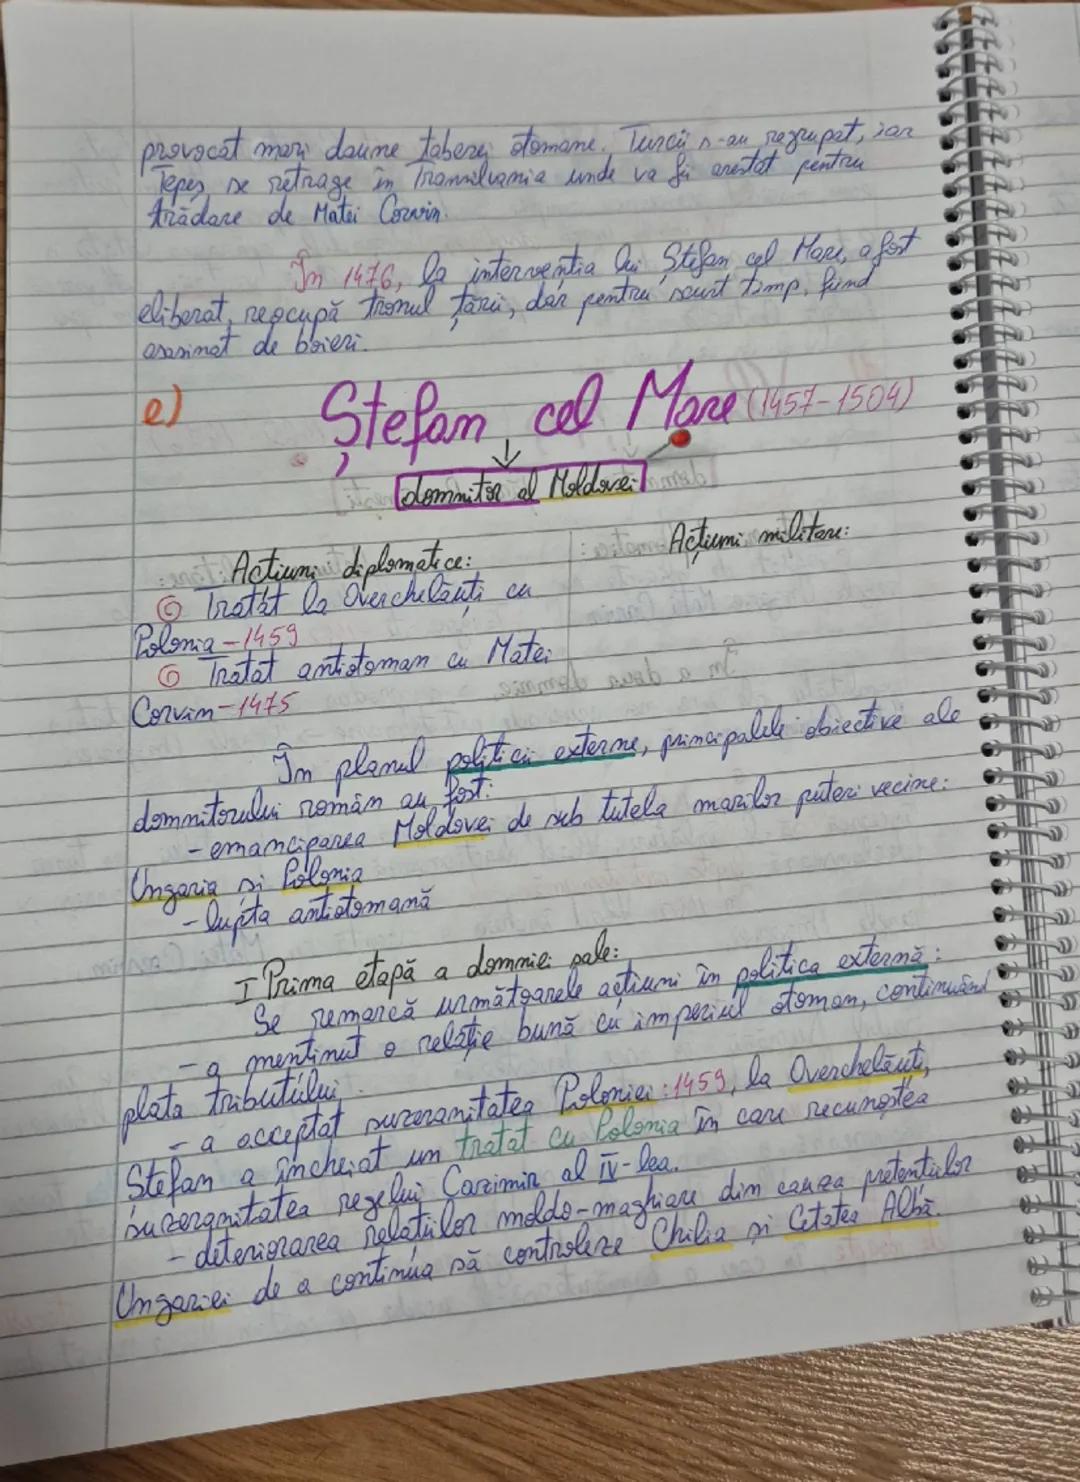 provocat mari daune taberei otomane. Turcii s-au regrupat, iar
Țepeș se retrage în Transilvania unde va fi arestat pentru
trădare de Matei Corvin.
În 1476, la intervenția lui Ștefan cel Mare, a fost
eliberat, reocupă tronul țării, dar pentru scurt timp, fiind
asasinat de boieri.
e) Ștefan cel Mare (1457-1504)
↓
domnitor al Moldovei
Acțiuni diplomatice: Acțiuni militare:
Tratat la Overchelăuți cu
Polonia - 1459
Tratat antiotoman cu Matei
Corvin - 1475
În planul politicii externe, principalele obiective ale
domnitorului român au fost:
- emanciparea Moldovei de sub tutela marilor puteri vecine:
Ungaria și Polonia
- lupta antiotomană
I Prima etapă a domniei sale:
Se remarcă următoarele acțiuni în politica externă:
- a menținut o relație bună cu imperiul otoman, continuând
plata tributului.
- a acceptat suzeranitatea Poloniei: 1459, la Overchelăuți,
Ștefan a încheiat un tratat cu Polonia în care recunoștea
suzeranitatea regelui Cazimir al IV-lea.
- deteriorarea relațiilor moldo-maghiare din cauza pretențiilor
Ungariei de a continua să controleze Chilia și Cetatea Albă.